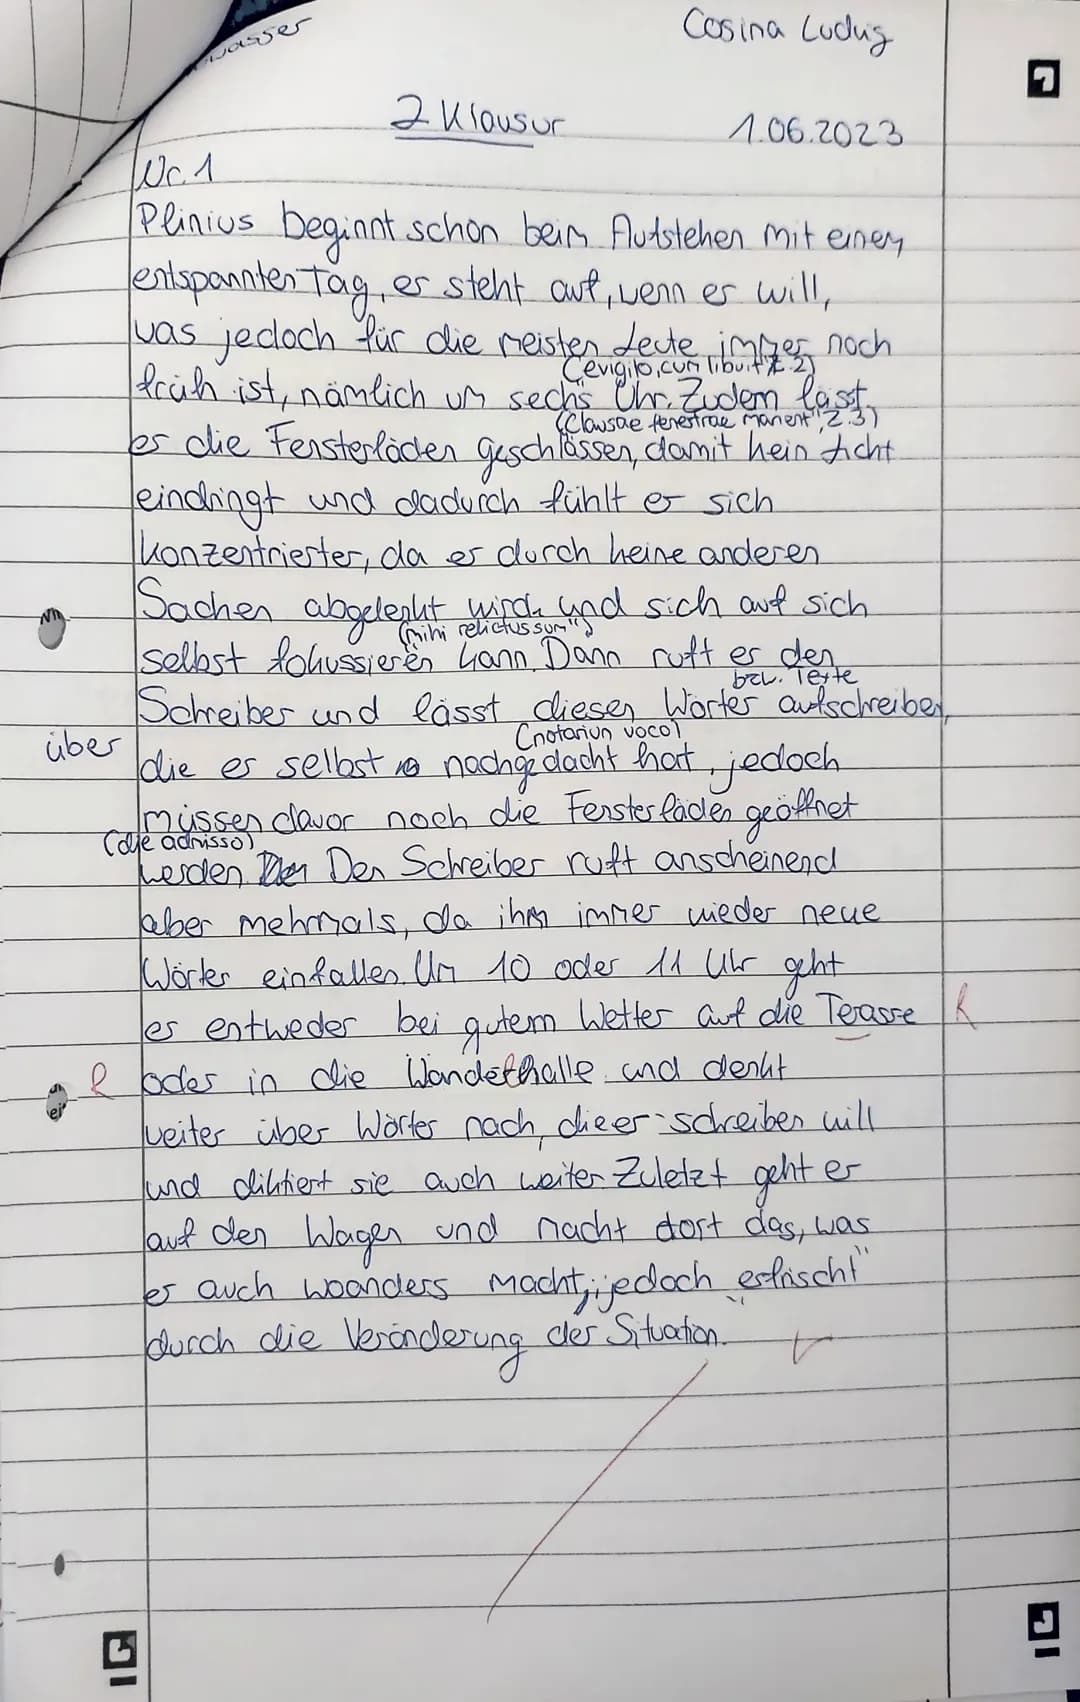 wasser
Cosina Ludwig
2 Klausur 1.06.2023
Nr. 1
Plinius beginnt schon beim Aufstehen mit einem
entspannten Tag, er steht auf, wenn er will,
was jedoch für die meisten Leute immer noch
(evigilo, cum libuit Z. 2)
früh ist, nämlich um sechs Uhr. Zudem lässt
(Clausae fenestrae manent", Z. 3)
er die Fensterläden geschlossen, damit kein Licht
eindringt und dadurch fühlt er sich
konzentrierter, da er durch keine anderen
Sachen abgelenkt wird und sich auf sich
(mihi relictus sum")
selbst fokussieren kann. Dann ruft er den
bzw. Texte
Schreiber und lässt diesen Wörter aufschreiben,
(notarium voco)
über die er selbst nachgedacht hat, jedoch
müssen davor noch die Fensterläden geöffnet
(die admisso)
werden. Den Schreiber ruft anscheinend
aber mehrmals, da ihm immer wieder neue
Wörter einfallen. Um 10 oder 11 Uhr geht
er entweder bei gutem Wetter auf die Terasse R
R oder in die Wandethalle und denkt
weiter über Wörter nach, die er schreiben will
und diktiert sie auch weiter. Zuletzt geht er
auf den Wagen und macht dort das, was
er auch woanders macht, jedoch „erfrischt"
durch die Veränderung der Situation.